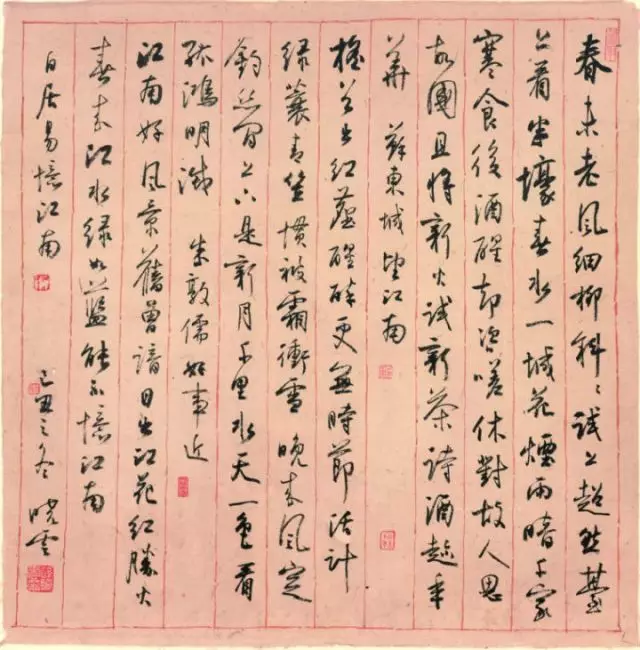 春未老風細柳斜〻試上超然臺
上看半壕春水一城花煙雨暗千家
寒食後酒醒却咨嗟休對故人思
故國且將新火試新茶詩酒趁年
華 蘇東坡望江南
搖首出紅塵醒醉更無時節活計
绿蓑青笠慣被霜衝雪 晚来風定
釣丝閒上下是新月千里水天一色看
孤鴻明滅 朱敦儒好事近
江南好風景舊曾諳日出江花紅勝火
春来江水绿如藍能不憶江南
白居易憶江南 己丑之冬 晓雲